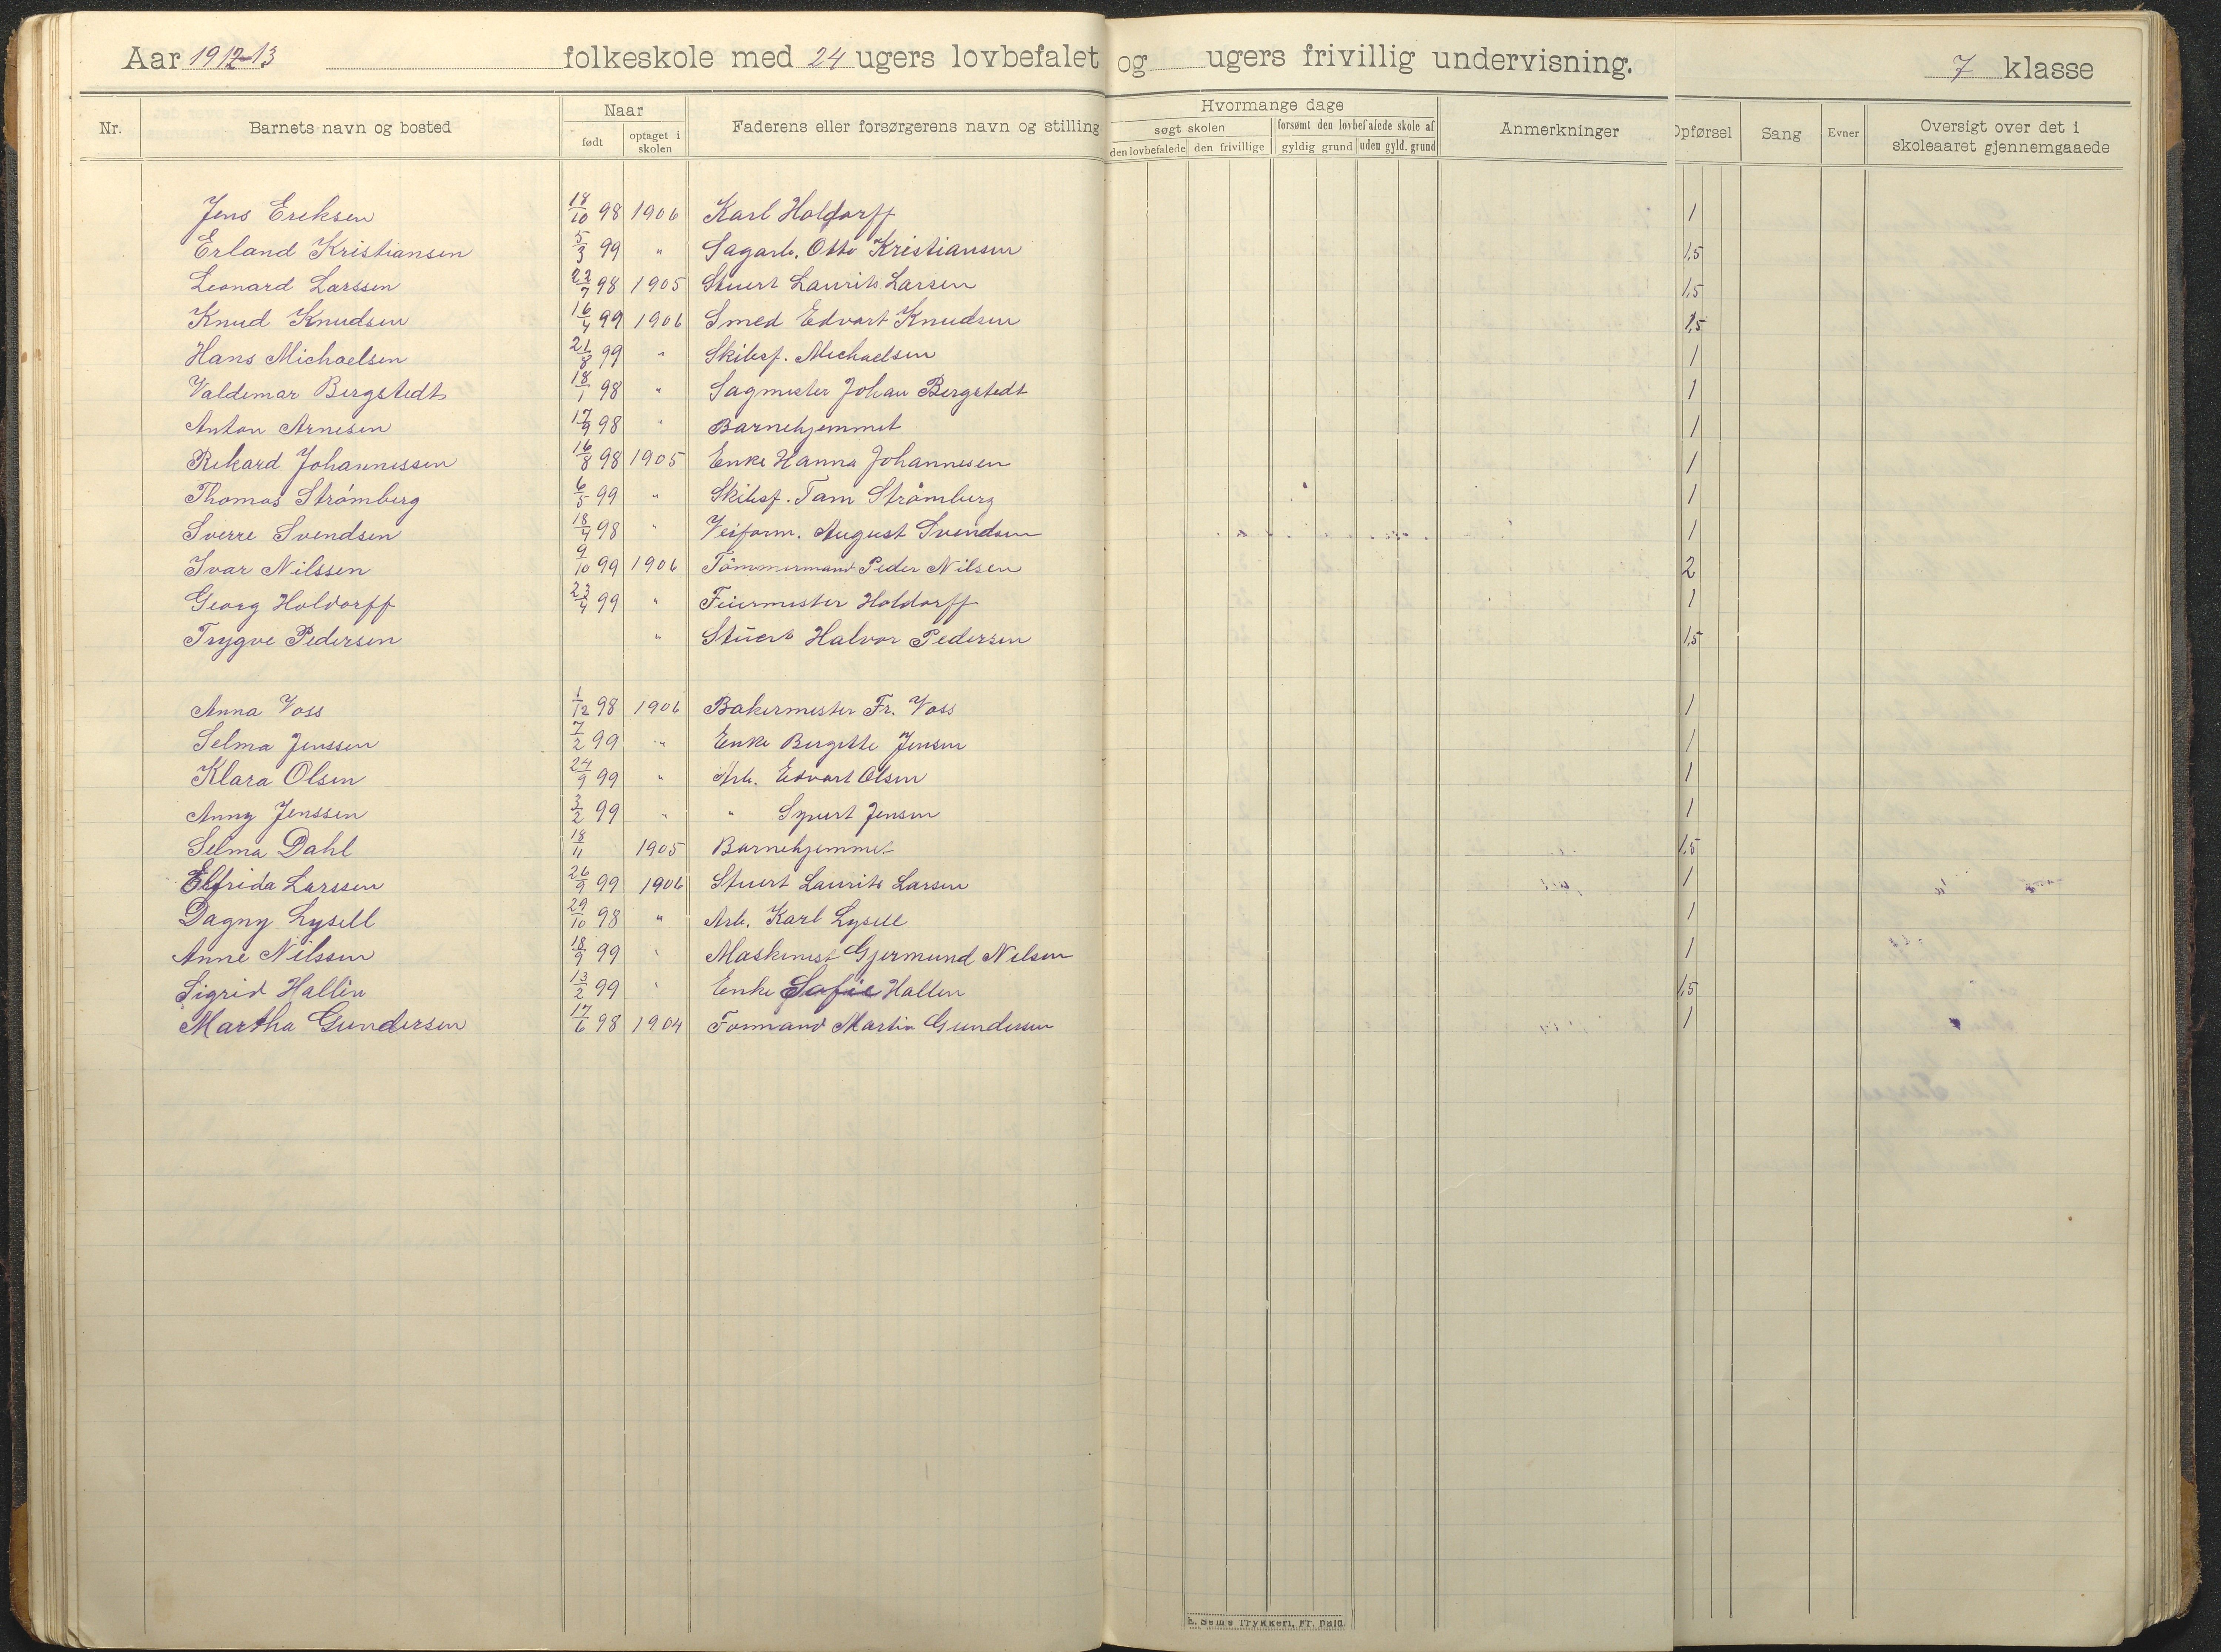 Aar 1912-13 folkeskole med 24 ugers lovbefalet og ugers frivillig undervisning. 7 klasse
Nr. Barnets navn og bosted Naar født optaget i skolen Faderens eller forsørgerens navn og stilling Hvormange dage søgt skolen den lovbefalede den frivillige forsømt den lovbefalede skole af gyldig grund uden gyld. grund Anmerkninger Opførsel Sang Evner Oversigt over det i skoleaaret gjennemgaaede
Jens Ereksen 18/10 98 1906 Karl Holdorff 1
Erland Kristiansen 5/3 99 " Sagarb. Otto Kristiansen 1,5
Leonard Larssen 22/7 98 1905 Stuert Laurits Larsen 1,5
Knud Knudsen 16/4 99 1906 Smed Edvart Knudsen 1,5
Hans Michaelsen 21/8 99 " Skibsf. Michaelsen 1
Valdemar Bergstedt 18/1 98 " Sagmester Johan Bergstedt 1
Anton Arnesen 17/9 98 " Barnehjemmet 1
Rikard Johannessen 16/8 98 1905 Enke Hanna Johannesen 1
Thomas Strömberg 6/5 99 " Skibsf. Tam Strömberg 1
Sverre Svendsen 18/4 98 " Veiform. August Svendsen 1
Ivar Nilssen 9/10 99 1906 Tömmermand Peder Nilsen 2
Georg Holdorff 23/4 99 " Feiermester Holdorff 1
Trygve Pedersen " Stuert Halvor Pedersen 1,5
Anna Voss 1/12 98 1906 Bakermester Fr. Voss 1
Selma Jenssen 7/2 99 " Enke Bergitte Jensen 1
Klara Olsen 24/9 99 " Arb. Edvart Olsen 1
Anny Jenssen 3/2 99 " " Syvert Jensen 1
Selma Dahl 18/11 1905 Barnehjemmet 1,5
Elfrida Larssen 26/9 99 1906 Stuert Laurits Larsen 1
Dagny Lysell 29/10 98 " Arb. Karl Lysell 1
Anne Nilssen 18/9 99 " Maskinist Gjermund Nelsen 1
Sigrid Hallin 13/2 99 " Enke Sofie Hallen 1,5
Martha Gundersen 17/6 98 1904 Formand Martin Gundersen 1
E. Sems Trykkeri, Fr. hald.